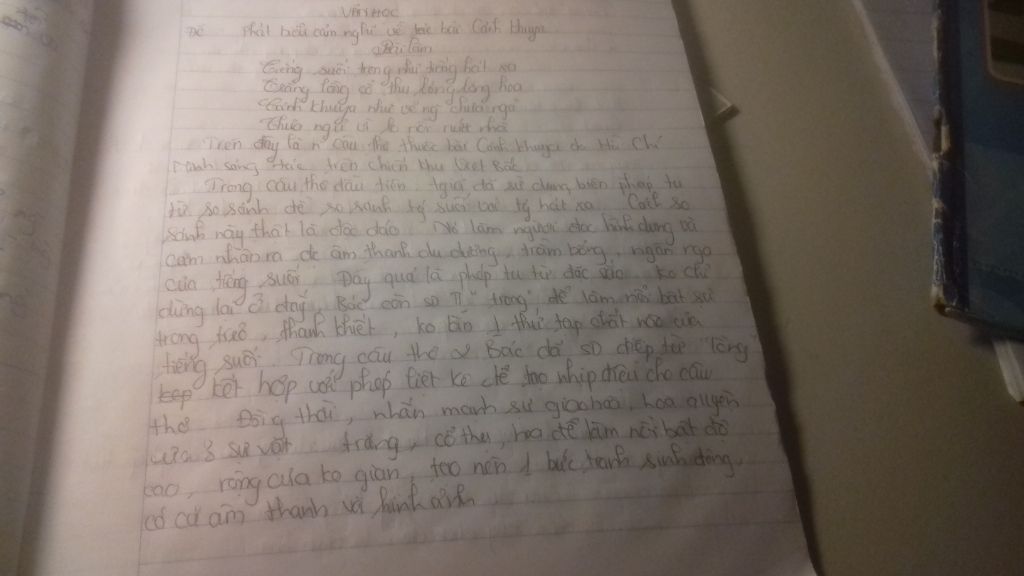 VĂN HỌC
Đề Phát biểu cảm nghĩ về bài Cảnh khuya
Bài làm
Tiếng suối trong như tiếng hát xa
Trăng lồng cổ thụ bóng lồng hoa
Cảnh khuya như vẽ ng chưa ngủ
Chưa ngủ vì lo nỗi nước nhà
Trên đây là n~ câu thơ thuộc bài Cảnh khuya do Hồ Chí
Minh sáng tác trên chiến khu Việt Bắc.
Trong câu thơ đầu tiên, tgiả đã sử dụng biện pháp tu
từ so sánh để so sánh tg suối với tg hát xa. Cách so
sánh này thật là độc đáo. Nó làm người đọc hình dung và
cảm nhận ra đc âm thanh du dương, trầm bổng, ngân nga
của tiếng suối. Đây quả là phép tu từ đặc sắc. Ko chỉ
dừng lại ở đấy, Bác còn sd TT "trong" để làm nổi bật sự
trong trẻo, thanh khiết, ko lẫn 1 thứ tạp chất nào của
tiếng suối. Trong câu thơ 2 Bác đã sd điệp từ "lồng"
kết hợp với phép liệt kê để tạo nhịp điệu cho câu
thơ. Đồng thời, nhấn mạnh sự giao hòa, hòa quyện
của 3 sự vật trăng, cổ thụ, hoa để làm nổi bật độ
cao, rộng của ko gian, tạo nên 1 bức tranh sinh động,
có cả âm thanh và hình ảnh